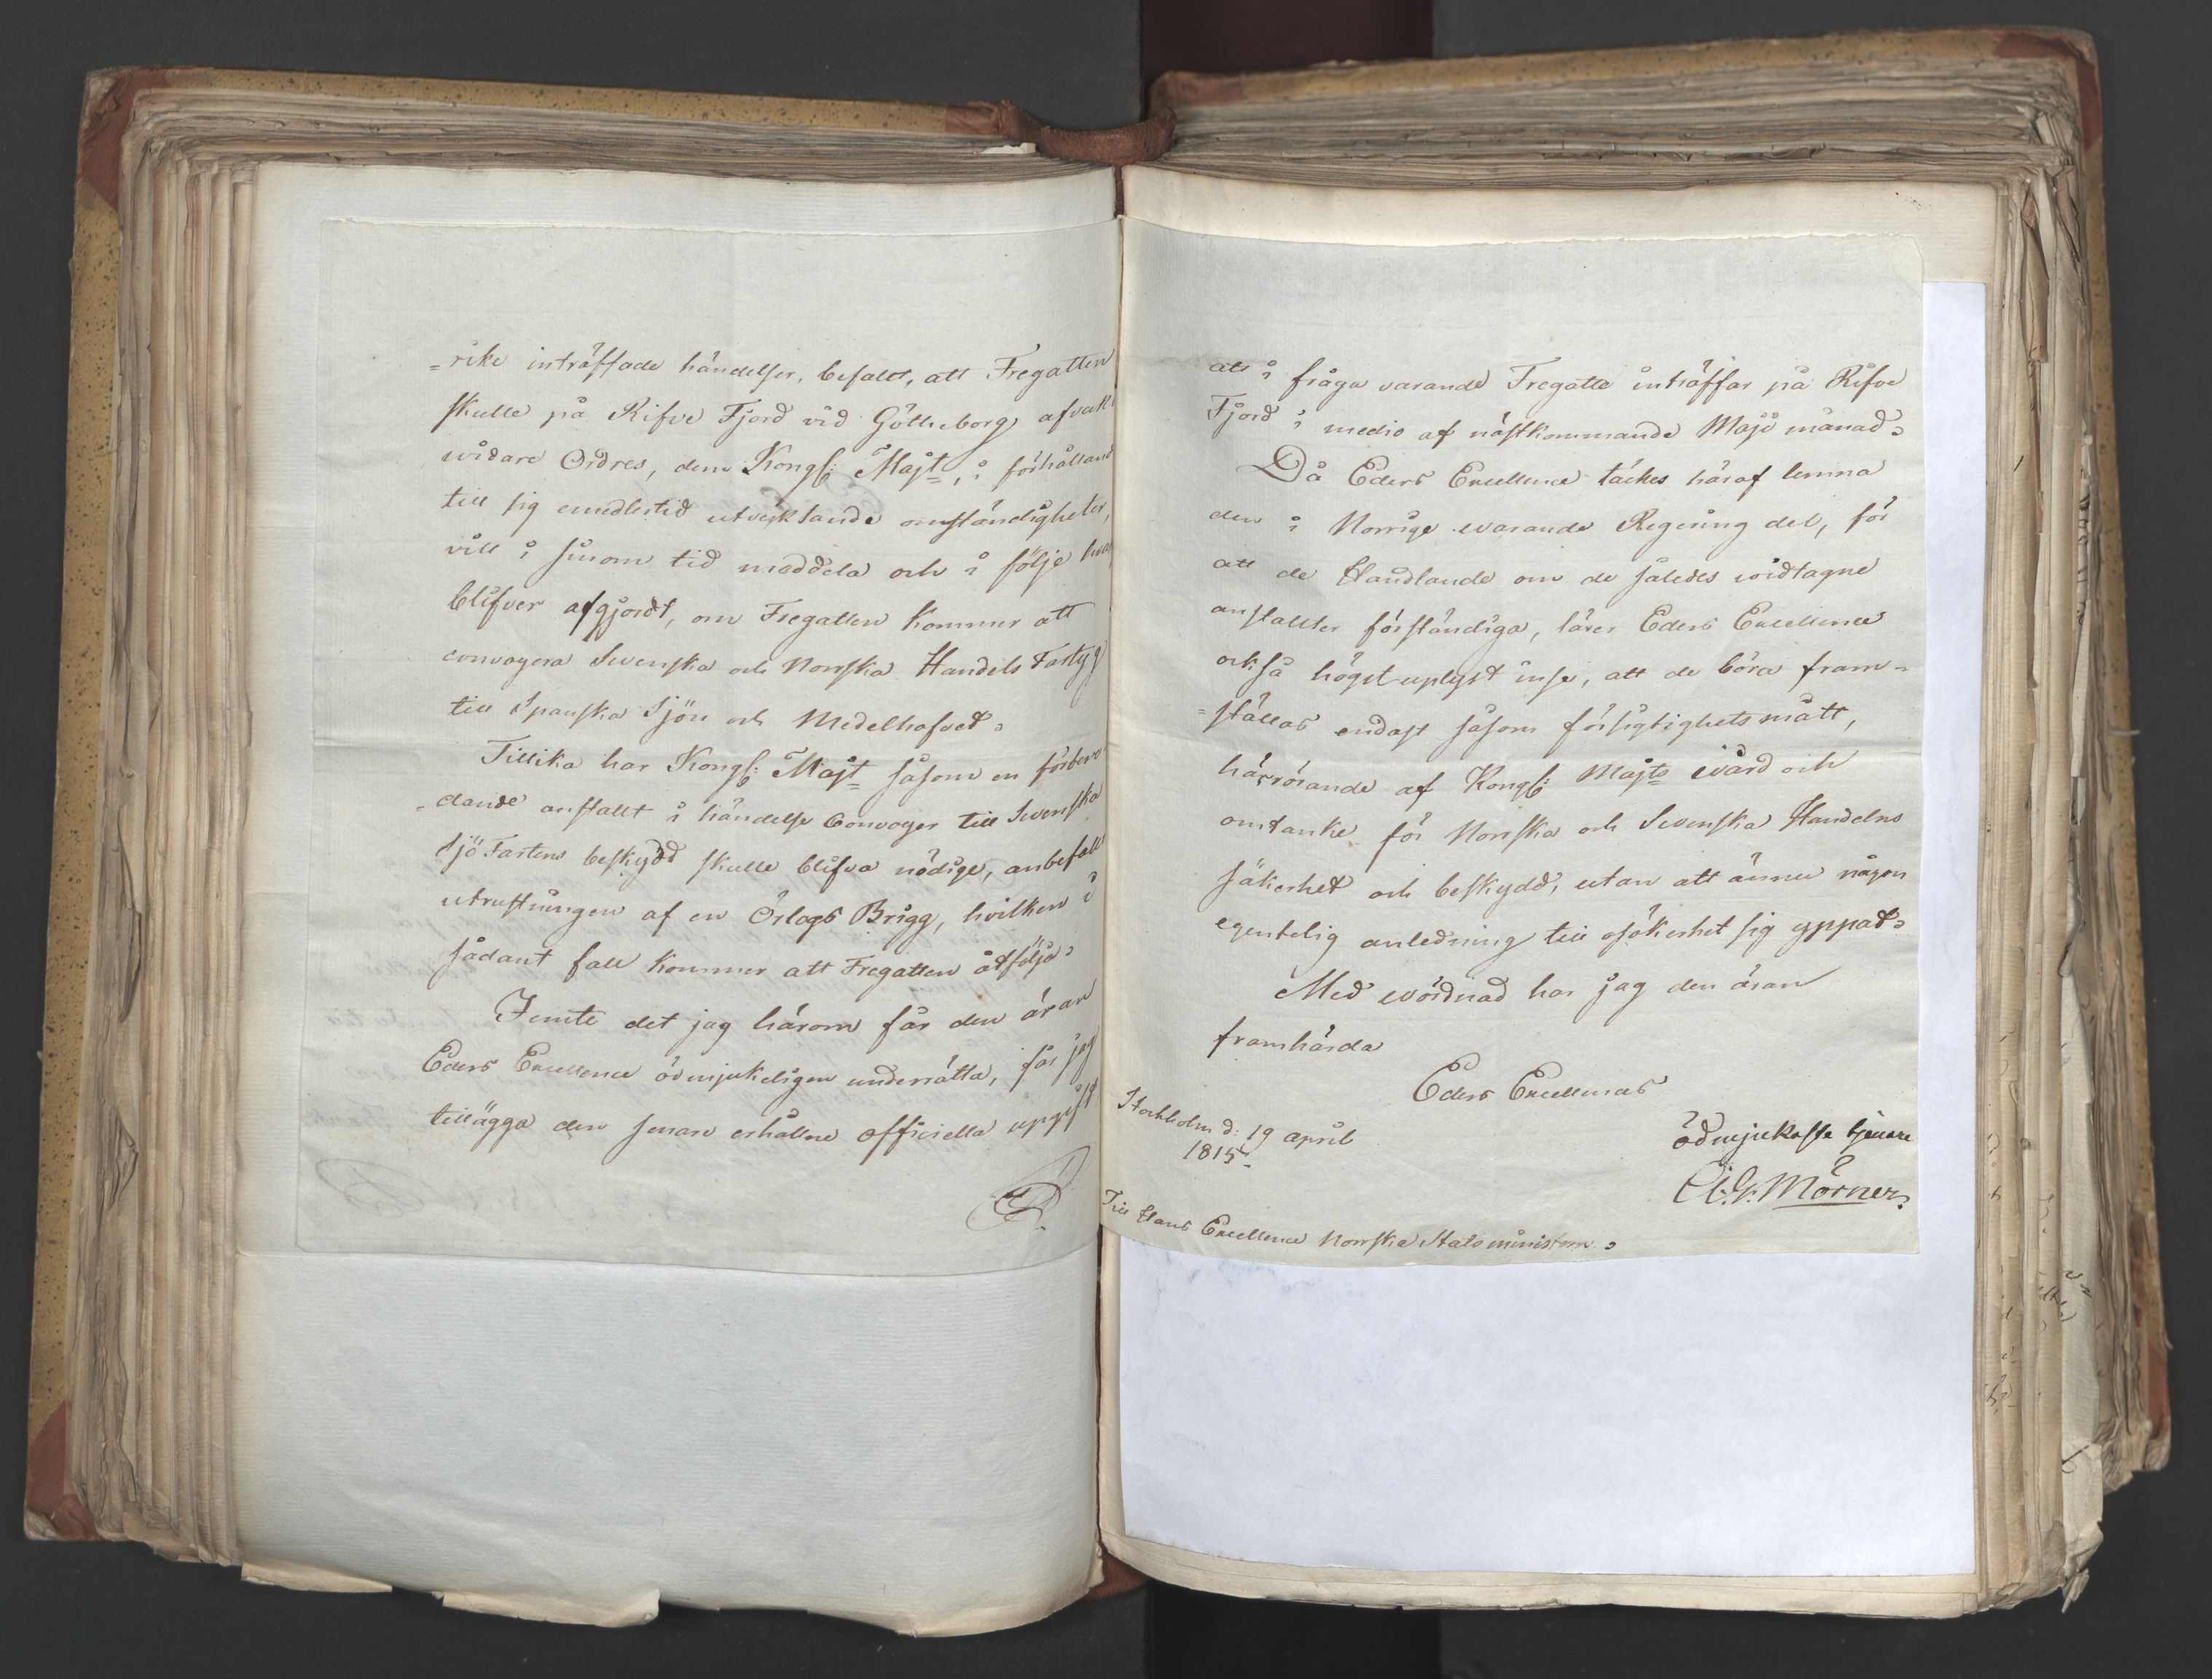 =rike inträffade händelser, befallt, att Fregatten
skulle på Rifve Fjord vid Götheborg afvakt
widare Ordres, dem Kongl: Majt, i förhålland
till sig emedlertid utvecklande omständigheter,
vill i sinom tid meddela och i följe hvar
blifver afgjordt, om Fregatten kommer att
convoyera Swenska och Norrska Handels Fartyg
till Spanska Sjön och Medelhafvet.
Tillika har Kongl: Majt såsom en förbere
=dande anstallt i händelse Convoyer till Swenska
Sjö Fartens beskydd skulle blifva nödige, anbefallt
utrustningen af en Örlogs Brigg, hvilken i
sådant fall kommer att Fregatten åtfölja.
Jemte det jag härom får den äran
Eders Excellence ödmjukeligen underrätta, får jag
tillägga den senare erhållne officiella uppgift
att i fråga varande Fregatte inträffar på Rifve
Fjord i medio af nästkommande Maji månad.
Då Eders Excellence täckes häraf lemna
den i Norrige warande Regering del, för
att de Handlande om de således widtagne
anstallter förständiga, lärer Eders Excellence
också högst uplyst inse, att de böra fram=
=ställas endast såsom försigtighetsmått,
härrörande af Kongl: Majts wård och
omtanke för Norrska och Swenska Handelns
säkerhet och beskydd, utan att ännu någon
egentelig anledning till osäkerhet sig yppat.
Med wördnad har jag den äran
framhärda
Eders Excellences
Stockholm d: 19 april
1815.
ödmjukaste tjenare
Mörner.
Till Hans Excellence Norrska Statsministern.